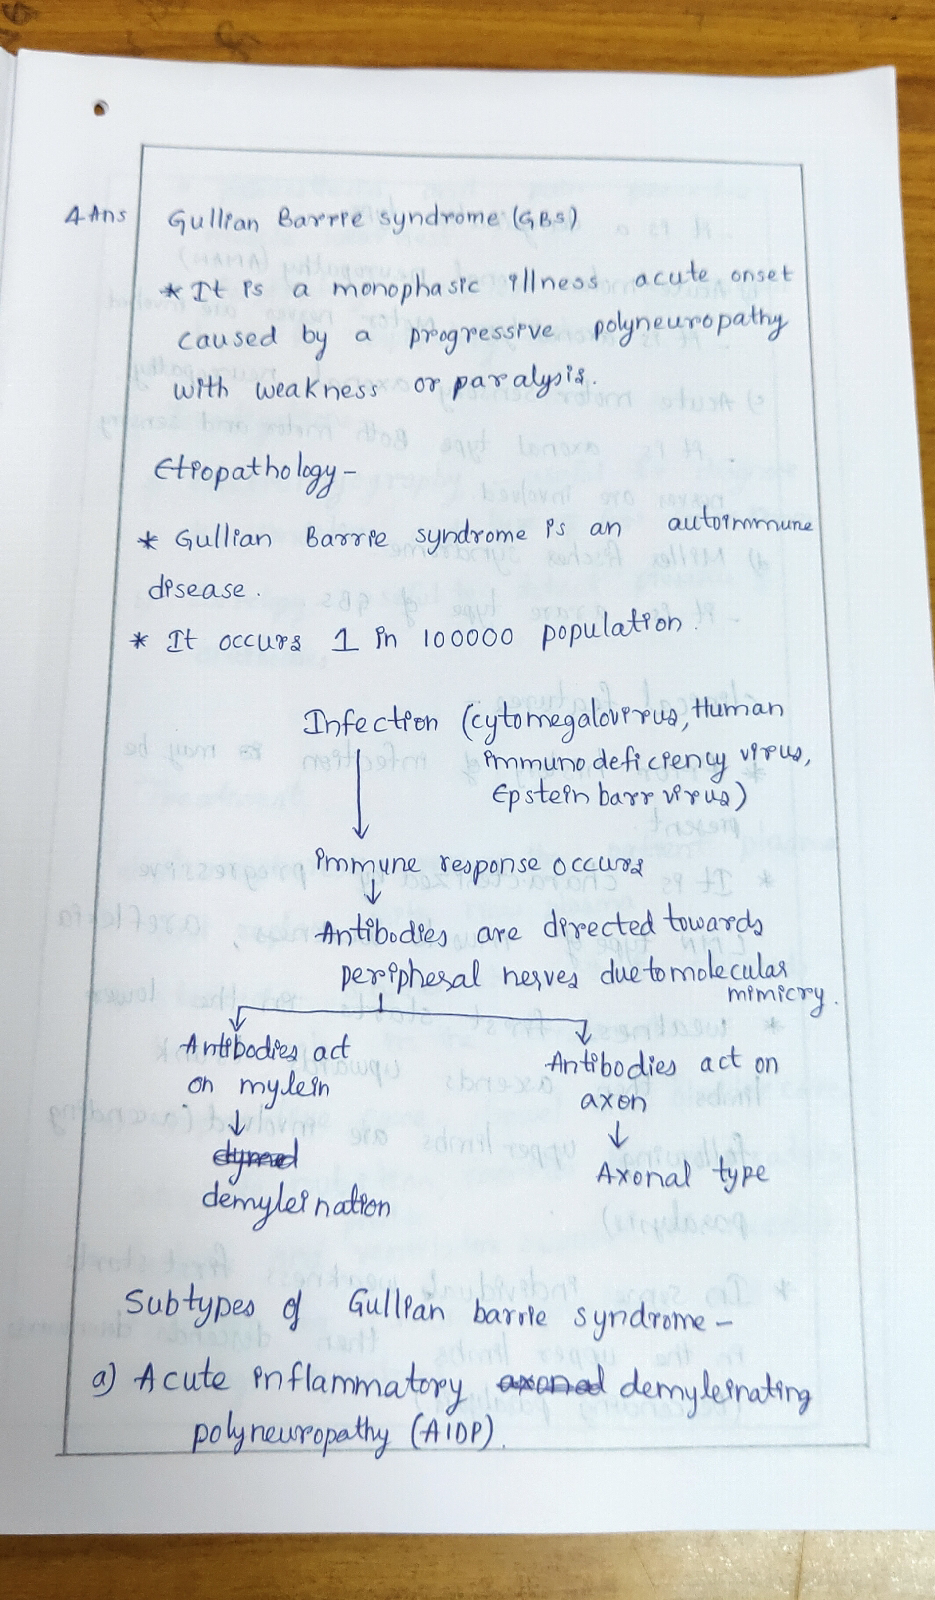 4 Ans
Gullian Barrie syndrome (GBS)
* It is a monophasic illness acute onset
caused by a progressive polyneuropathy
with weakness or paralysis.
Etiopathology -
* Gullian Barrie syndrome is an autoimmune
disease.
* It occurs 1 in 100000 population.
Infection (cytomegalovirus, Human
immuno deficiency virus,
Epstein barr virus)
immune response occurs
Antibodies are directed towards
peripheral nerves due to molecular
mimicry.
Antibodies act
on mylein
demyleination
Antibodies act on
axon
Axonal type
Subtypes of Gullian barrie syndrome -
a) Acute inflammatory demyleinating
polyneuropathy (AIDP).